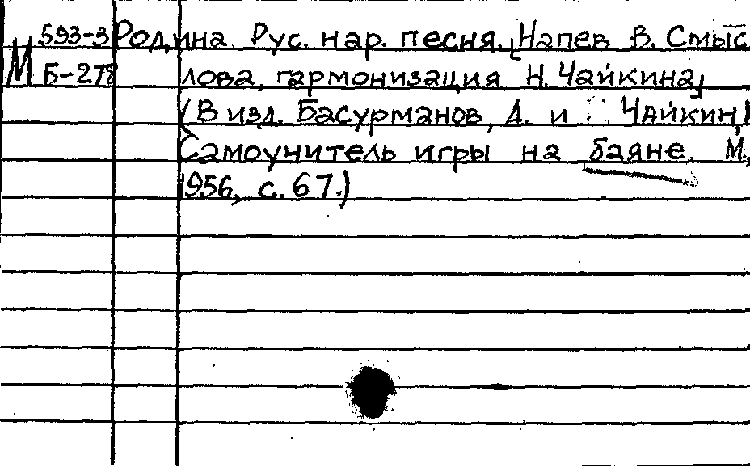 593-3 Родина. Рус. нар. песня. [Напев В. Смыс
М Б-278 лова, гармонизация Н. Чайкина]
(В изд. Басурманов, А. и Чайкин,
Самоучитель игры на баяне. М,
1956, с. 67.)